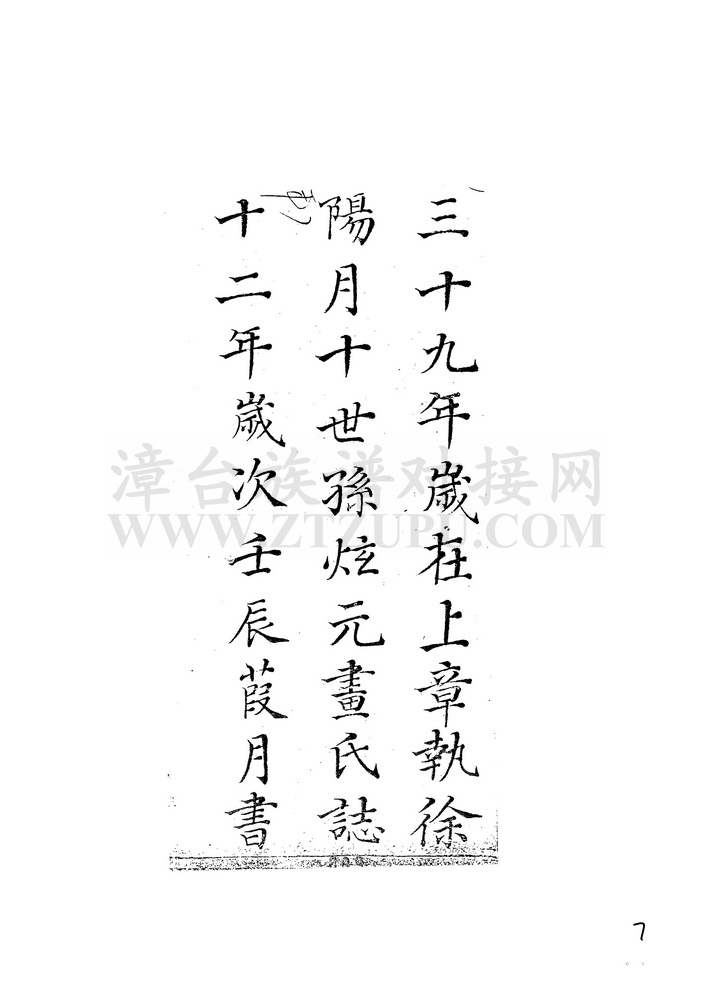 三十九年歲在上章執徐
陽月十世孫炫元畫氏誌
十二年歲次壬辰葭月書
漳台族谱对接网
WWW.ZTZUPU.COM
7